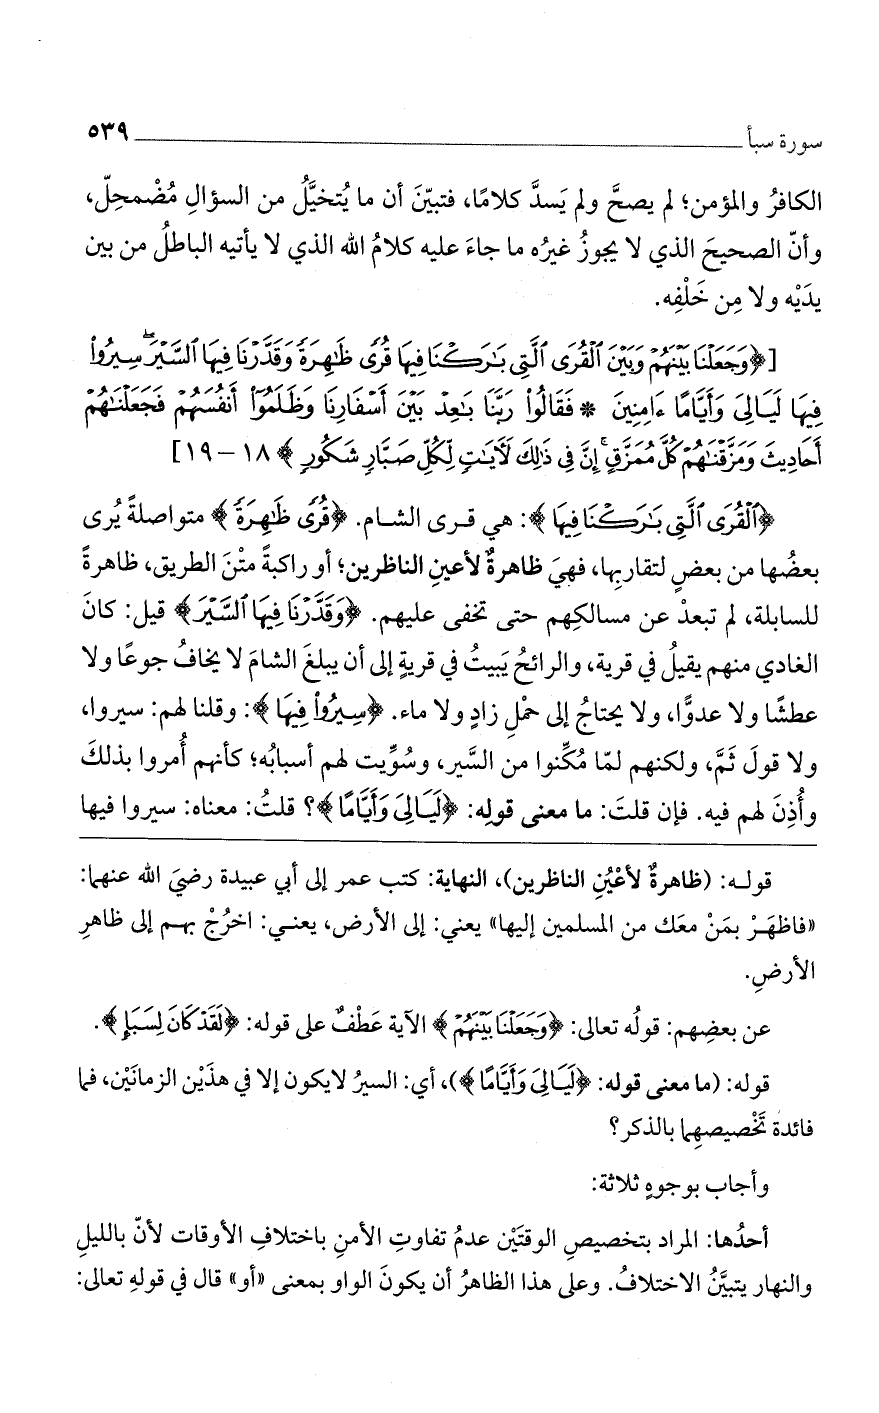 سورة سبأ ٥٣٩
الكافرُ والمؤمن؛ لم يصحَّ ولم يَسدَّ كلامًا، فتبيّنَ أن ما يُتخيَّلُ من السؤالِ مُضْمحِلّ،
وأنّ الصحيحَ الذي لا يجوزُ غيرُه ما جاءَ عليه كلامُ الله الذي لا يأتيه الباطلُ من بين
يدَيْه ولا مِن خَلْفِه.
[﴿وَجَعَلْنَا بَيْنَهُمْ وَبَيْنَ ٱلْقُرَى ٱلَّتِى بَـٰرَكْنَا فِيهَا قُرًى ظَـٰهِرَةً وَقَدَّرْنَا فِيهَا ٱلسَّيْرَ ۖ سِيرُوا۟
فِيهَا لَيَالِىَ وَأَيَّامًا ءَامِنِينَ * فَقَالُوا۟ رَبَّنَا بَـٰعِدْ بَيْنَ أَسْفَارِنَا وَظَلَمُوٓا۟ أَنفُسَهُمْ فَجَعَلْنَـٰهُمْ
أَحَادِيثَ وَمَزَّقْنَـٰهُمْ كُلَّ مُمَزَّقٍ ۚ إِنَّ فِى ذَٰلِكَ لَـَٔايَـٰتٍ لِّكُلِّ صَبَّارٍ شَكُورٍ﴾ ١٨ – ١٩]
﴿ٱلْقُرَى ٱلَّتِى بَـٰرَكْنَا فِيهَا﴾: هي قرى الشام. ﴿قُرًى ظَـٰهِرَةً﴾ متواصلةً يُرى
بعضُها من بعضٍ لتقاربِها، فهيَ ظاهرةٌ لأعينِ الناظرين؛ أو راكبةً متْنَ الطريق، ظاهرةً
للسابلة، لم تبعدْ عن مسالكِهم حتى تخفى عليهم. ﴿وَقَدَّرْنَا فِيهَا ٱلسَّيْرَ﴾ قيل: كانَ
الغادي منهم يقيلُ في قرية، والرائحُ يَبيتُ في قريةٍ إلى أن يبلغَ الشامَ لا يخافُ جوعًا ولا
عطشًا ولا عدوًّا، ولا يحتاجُ إلى حمْلِ زادٍ ولا ماء. ﴿سِيرُوا۟ فِيهَا﴾: وقلنا لهم: سيروا،
ولا قولَ ثَمَّ، ولكنهم لمّا مُكِّنوا من السَّير، وسُوِّيت لهم أسبابُه؛ كأنهم أُمروا بذلكَ
وأُذِنَ لهم فيه. فإن قلتَ: ما معنى قولِه: ﴿لَيَالِىَ وَأَيَّامًا﴾؟ قلتُ: معناه: سيروا فيها
قولـه: (ظاهرةٌ لأعْيُنِ الناظرين)، النهاية: كتب عمر إلى أبي عبيدة رضيَ الله عنهما:
«فاظهَـرْ بمَنْ معَك من المسلمين إليها» يعني: إلى الأرض، يعنـي: اخرُجْ بهـم إلى ظاهرِ
الأرضِ.
عن بعضِهم: قولُه تعالى: ﴿وَجَعَلْنَا بَيْنَهُمْ﴾ الآية عَطْفٌ على قوله: ﴿لَقَدْ كَانَ لِسَبَإٍ﴾.
قوله: (ما معنى قوله: ﴿لَيَالِىَ وَأَيَّامًا﴾)، أي: السيرُ لا يكون إلا في هذَيْن الزمانَيْن، فما
فائدة تَخْصيصِهِما بالذكر؟
وأجاب بوجوهٍ ثلاثة:
أحدُها: المراد بتخصيصِ الوقتَيْن عدمُ تفاوتِ الأمنِ باختلافِ الأوقات لأنّ بالليلِ
والنهار يتبيَّنُ الاختلافُ. وعلى هذا الظاهرُ أن يكونَ الواو بمعنى «أو» قال في قولهِ تعالى: